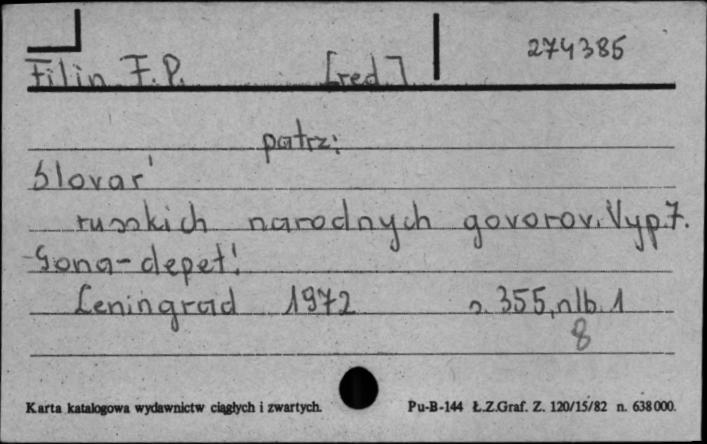 274385
Filin F.P. [red.]
patrz:
Slovar'
russkich narodnych govorov. Vyp. 7.
Gona-depet'.
Leningrad 1972 s. 355, nlb. 1
8
Karta katalogowa wydawnictw ciągłych i zwartych. Pu-B-144 Ł.Z.Graf. Z. 120/15/82 n. 638000.